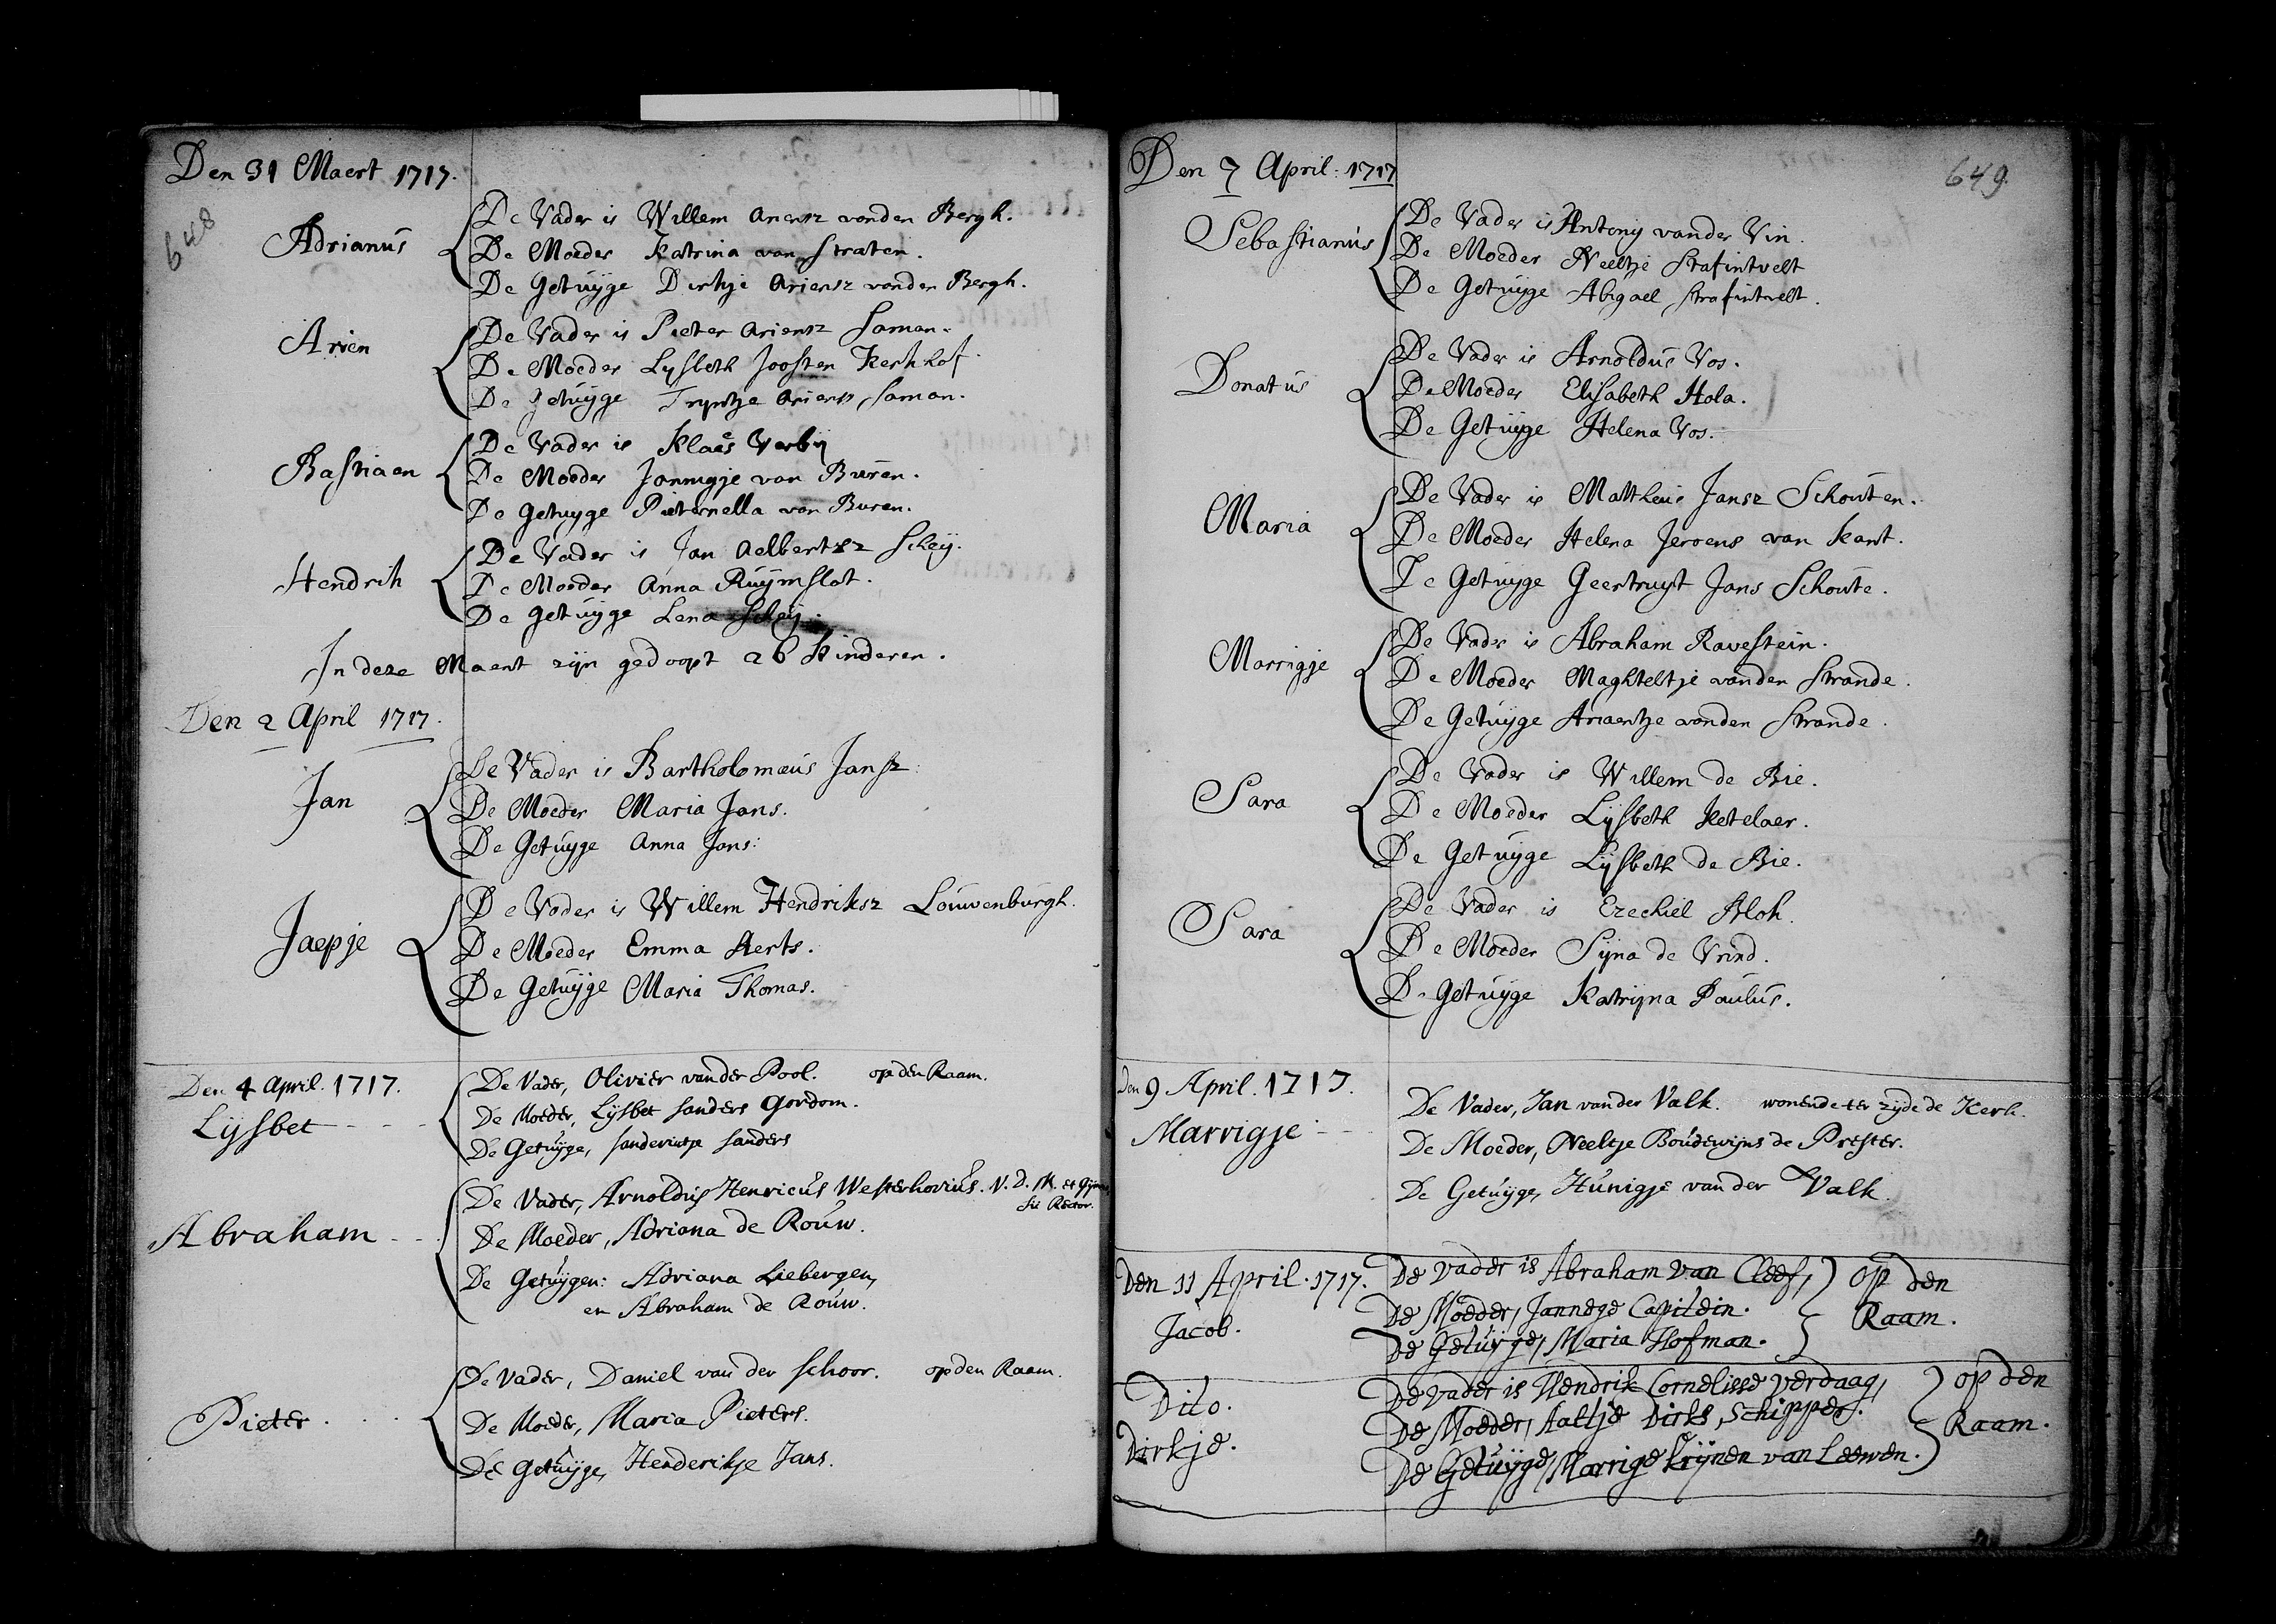 Den 31 Maert 1717.
648
Adrianus
De Vader is Willem Ariensz vanden Bergh.
De Moeder Katrina van Straten.
De Getuyge Dirkje Ariensz vanden Bergh.
Arien
De Vader is Pieter Ariensz Saman.
De Moeder Lysbeth Joosten Kerkhof.
De Getuyge Tryntje Ariens Saman.
Bastiaen
De Vader is Klaes Verbij
De Moeder Jannigje van Buren.
De Getuyge Pieternella van Buren.
Hendrik
De Vader is Jan Aelbertsz Scheij.
De Moeder Anna Ruijmslot.
De Getuyge Lena Scheij.
In deze Maent zijn gedoopt 26 Kinderen.
Den 2 April 1717.
Jan
De Vader is Bartholomeus Jansz:
De Moeder Maria Jans.
De Getuyge Anna Jans:
Jaepje
De Vader is Willem Hendriksz Louwenburgh.
De Moeder Emma Aerts.
De Getuyge Maria Thomas.
Den 4 April. 1717.
Lijsbet
De Vader, Olivier van der Pool. op den Raam.
De Moeder, Lijsbet Sanders Gordom.
De Getuijge, Sanderintje Sanders
Abraham
De Vader, Arnoldus Henricus Westerhovius. V. D. M. et Gymna
sii Rector.
De Moeder, Adriana de Rouw.
De Getuijgen: Adriana Liebergen,
en Abraham de Rouw.
Pieter
De Vader, Daniel van der Schoor. op den Raam.
De Moeder, Maria Pieters.
De Getuijge, Henderikje Jans.
Den 7 April: 1717
649.
Sebastianus
De Vader is Antony vander Vin.
De Moeder Neeltje Strafintvelt
De Getuyge Abigael Strafintvelt.
Donatus
De Vader is Arnoldus Vos.
De Moeder Elisabeth Hola.
De Getuyge Helena Vos.
Maria
De Vader is Mattheus Jansz Schouten.
De Moeder Helena Jeroens van Kant.
De Getuyge Geertruyt Jans Schoute.
Marrigje
De Vader is Abraham Ravestein.
De Moeder Maghteltje vanden Strande.
De Getuyge Ariaentje vanden Strande.
Sara
De Vader is Willem de Bie.
De Moeder Lijsbeth Ketelaer.
De Getuyge Lijsbeth de Bie.
Sara
De Vader is Ezechiel Blok.
De Moeder Sijna de Vrind.
De Getuyge Katrijna Paulus.
Den 9 April. 1717.
Marrigje
De Vader, Jan vander Valk. wonende ter zijde de Kerk.
De Moeder, Neeltje Boudewijns de Prester.
De Getuijge, Hunigje van der Valk.
Den 11 April. 1717.
De vader is Abraham van Cleef, op den
De Moeder, Jannege Capitein. Raam.
Jacob.
De Getuijge, Maria Hofman.
Dito.
De vader is Hendrik Cornelisse Verdaag, op den
De Moeder, Aaltje Dirks Schipper. Raam.
Dirkje.
De Getuijge, Marrige Krijnen van Leewen.